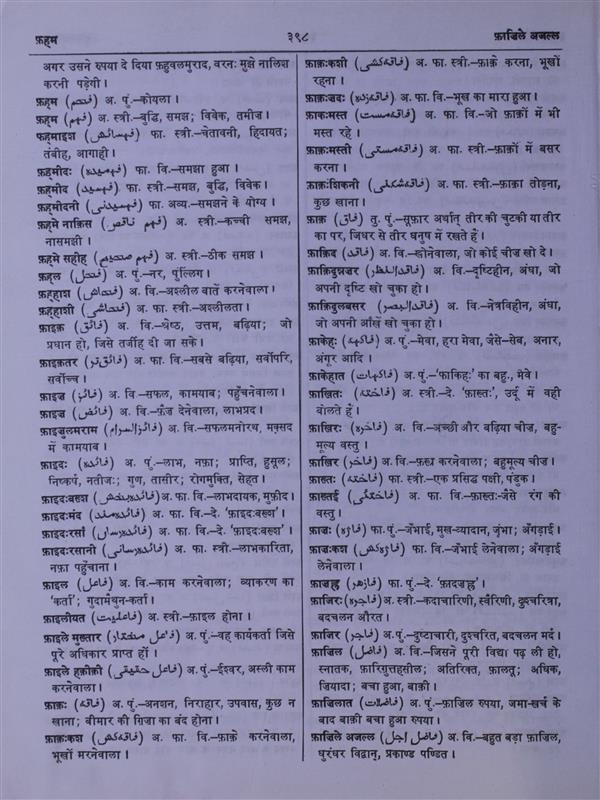 फ़हम
३९८
फ़ाज़िले अजल्ल
अगर उसने रुपया दे दिया फ़हुवलमुराद, वरनः मुझे नालिश
करनी पड़ेगी।
फ़हम (فحم) अ. पुं.–कोयला।
फ़ह्म (فہم) अ. स्त्री.–बुद्धि, समझ; विवेक, तमीज़।
फह्माइश (فہمائش) फा. स्त्री.–चेतावनी, हिदायत;
तंबीह, आगाही।
फ़ह्मीदः (فہمیدہ) फा. वि.–समझा हुआ।
फ़ह्मीद (فہمید) फा. स्त्री.–समझ, बुद्धि, विवेक।
फ़ह्मीदनी (فہمیدنی) फा. अव्य.–समझने के योग्य।
फ़ह्मे नाक़िस (فہم ناقص) अ. स्त्री.–कच्ची समझ,
नासमझी।
फ़ह्मे सहीह (فہم صحیح) अ. स्त्री.–ठीक समझ।
फ़ह्ल (فحل) अ. पुं.–नर, पुंल्लिग।
फ़ह्हाश (فحاش) अ. वि.–अश्लील बातें करनेवाला।
फ़ह्हाशी (فحاشی) अ. स्त्री.–अश्लीलता।
फ़ाइक़ (فائق) अ. वि.–श्रेष्ठ, उत्तम, बढ़िया; जो
प्रधान हो, जिसे तर्जीह दी जा सके।
फ़ाइक़तर (فائق تر) अ. फा. वि.–सबसे बढ़िया, सर्वोपरि,
सर्वोच्च।
फ़ाइज़ (فائز) अ. वि.–सफल, कामयाब; पहुँचनेवाला।
फ़ाइज़ (فائض) अ. वि.–फ़ैज़ देनेवाला, लाभप्रद।
फ़ाइज़ुलमराम (فائزالمرام) अ. वि.–सफलमनोरथ, मक़्सद
में कामयाब।
फ़ाइदः (فائدہ) अ. पुं.–लाभ, नफ़ा; प्राप्ति, हुसूल;
निष्कर्ष, नतीजः; गुण, तासीर; रोगमुक्ति, सेहत।
फ़ाइदःबख़्श (فائدہ بخش) अ. फा. वि.–लाभदायक, मुफ़ीद।
फ़ाइदःमंद (فائدہ مند) अ. फा. वि.–दे. 'फ़ाइदःबख़्श'।
फ़ाइदःरसाँ (فائدہ رساں) अ. फा. वि.–दे. 'फ़ाइदःबख़्श'।
फ़ाइदःरसानी (فائدہ رسانی) अ. फा. स्त्री.–लाभकारिता,
नफ़ा पहुँचाना।
फ़ाइल (فاعل) अ. वि.–काम करनेवाला; व्याकरण का
'कर्ता'; गुदामैथुन-कर्ता।
फ़ाइलीयत (فاعلیت) अ. स्त्री.–फ़ाइल होना।
फ़ाइले मुख़्तार (فاعل مختار) अ. पुं.–वह कार्यकर्ता जिसे
पूरे अधिकार प्राप्त हों।
फ़ाइले हक़ीक़ी (فاعل حقیقی) अ. पुं.–ईश्वर, अस्ली काम
करनेवाला।
फ़ाक़ः (فاقہ) अ. पुं.–अनशन, निराहार, उपवास, कुछ न
खाना; बीमार की ग़िज़ा का बंद होना।
फ़ाक़ःकश (فاقہ کش) अ. फा. वि.–फ़ाक़े करनेवाला,
भूखों मरनेवाला।
फ़ाक़ःकशी (فاقہ کشی) अ. फा. स्त्री.–फ़ाक़े करना, भूखों
रहना।
फ़ाक़ःज़दः (فاقہ زدہ) अ. फा. वि.–भूख का मारा हुआ।
फ़ाक़ःमस्त (فاقہ مست) अ. फा. वि.–जो फ़ाक़ों में भी
मस्त रहे।
फ़ाक़ःमस्ती (فاقہ مستی) अ. फा. स्त्री.–फ़ाक़ों में बसर
करना।
फ़ाक़ःशिकनी (فاقہ شکنی) अ. फा. स्त्री.–फ़ाक़ा तोड़ना,
कुछ खाना।
फ़ाक़ (فاق) तु. पुं.–सूफ़ार अर्थात् तीर की चुटकी या तीर
का पर, जिधर से तीर धनुष में रखते हैं।
फ़ाक़िद (فاقد) अ. वि.–खोनेवाला, जो कोई चीज़ खो दे।
फ़ाक़िदुन्नज़र (فاقدالنظر) अ. वि.–दृष्टिहीन, अंधा, जो
अपनी दृष्टि खो चुका हो।
फ़ाक़िदुलबसर (فاقدالبصر) अ. वि.–नेत्रविहीन, अंधा,
जो अपनी आँखें खो चुका हो।
फ़ाकेहः (فاکہہ) अ. पुं.–मेवा, हरा मेवा, जैसे–सेब, अनार,
अंगूर आदि।
फ़ाकेहात (فاکہات) अ. पुं.–'फ़ाकिहः' का बहु., मेवे।
फ़ाख़ितः (فاختہ) अ. स्त्री.–दे. 'फ़ाख़्तः', उर्दू में वही
बोलते हैं।
फ़ाख़िरः (فاخرہ) अ. वि.–अच्छी और बढ़िया चीज़, बहु-
मूल्य वस्तु।
फ़ाख़िर (فاخر) अ. वि.–फ़ख़्र करनेवाला; बहुमूल्य चीज़।
फ़ाख़्तः (فاختہ) फा. स्त्री.–एक प्रसिद्ध पक्षी, पंडुक।
फ़ाख़्तई (فاختئی) अ. फा. वि.–फ़ाख़्तः-जैसे रंग की
वस्तु।
फ़ाजः (فاژہ) फा. पुं.–जँभाई, मुख-व्यादान, जृंभा; अँगड़ाई।
फ़ाजःकश (فاژہ کش) फा. वि.–जँभाई लेनेवाला; अँगड़ाई
लेनेवाला।
फ़ाज़ह्र (فازہر) फा. पुं.–दे. 'फ़ादज़ह्र'।
फ़ाजिरः (فاجرہ) अ. स्त्री.–कदाचारिणी, स्वैरिणी, दुश्चरित्रा,
बदचलन औरत।
फ़ाजिर (فاجر) अ. पुं.–दुष्टाचारी, दुश्चरित, बदचलन मर्द।
फ़ाज़िल (فاضل) अ. वि.–जिसने पूरी विद्या पढ़ ली हो,
स्नातक, फ़ारिग़ुत्तहसील; अतिरिक्त, फ़ालतू; अधिक,
ज़ियादा; बचा हुआ, बाक़ी।
फ़ाज़िलात (فاضلات) अ. पुं.–फ़ाज़िल रुपया, जमा-खर्च के
बाद बाक़ी बचा हुआ रुपया।
फ़ाज़िले अजल्ल (فاضل اجل) अ. वि.–बहुत बड़ा फ़ाज़िल,
धुरंधर विद्वान्, प्रकाण्ड पण्डित।